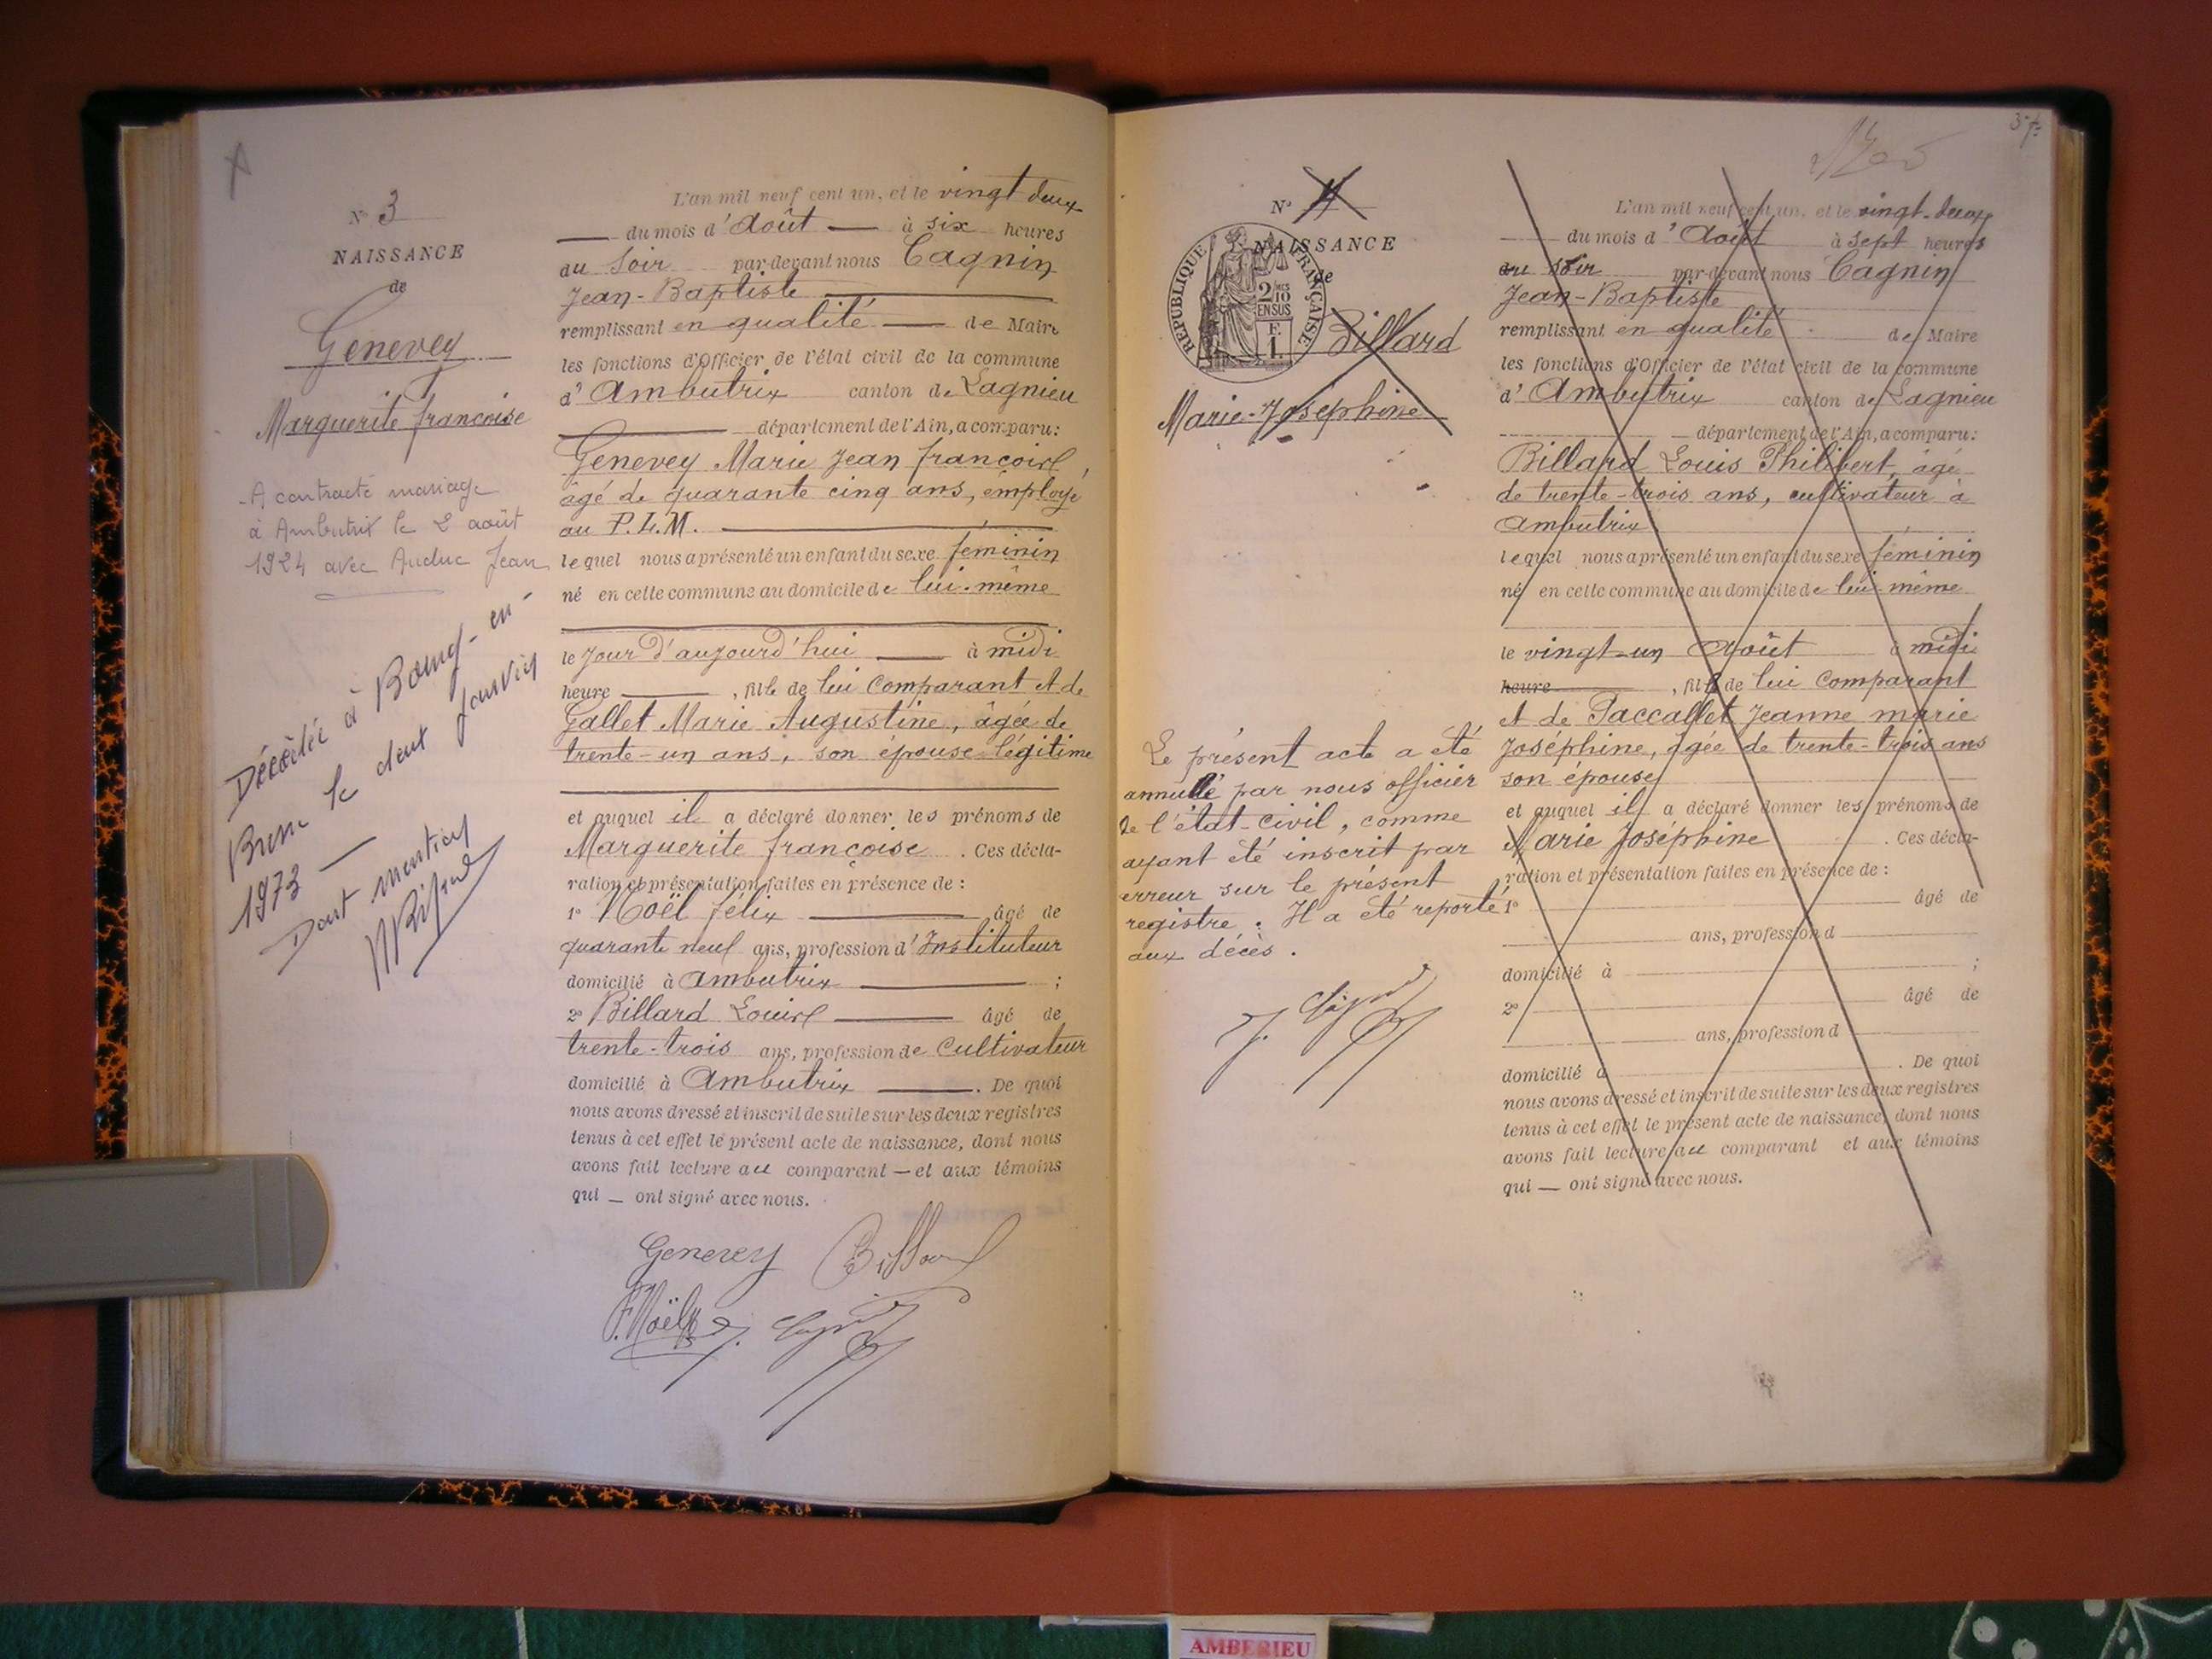 N° 3
NAISSANCE
de
Genevey
Marguerite françoise
- A contracté mariage
à Ambutrix le 2 août
1924 avec Anduc Jean
Décédée à Bourg-en-
Bresse le deux janvier
1973 —
Dont mention
L'an mil neuf cent un, et le vingt deux
— du mois d'Août — à six heures
du soir par-devant nous Cagnin
Jean-Baptiste
remplissant en qualité — de Maire
les fonctions d'Officier de l'état civil de la commune
d'Ambutrix canton de Lagnieu
— département de l'Ain, a comparu:
Genevey Marie Jean françois,
âgé de quarante cinq ans, employé
au P.L.M. —
lequel nous a présenté un enfant du sexe féminin
né en cette commune au domicile de lui-même
le jour d'aujourd'hui — à midi
heure —, fille de lui comparant et de
Gallet Marie Augustine, âgée de
trente-un ans, son épouse légitime
et auquel il a déclaré donner les prénoms de
Marguerite françoise. Ces décla-
ration et présentation faites en présence de :
1° Noël félix — âgé de
quarante neuf ans, profession d'Instituteur
domicilié à Ambutrix — ;
2° Billard Louis — âgé de
trente-trois ans, profession de Cultivateur
domicilié à Ambutrix —. De quoi
nous avons dressé et inscrit de suite sur les deux registres
tenus à cet effet le présent acte de naissance, dont nous
avons fait lecture au comparant — et aux témoins
qui — ont signé avec nous.
Genevey Billard
F. Noël J. Cagnin
37
N° 4
NAISSANCE
de
RÉPUBLIQUE FRANÇAISE
2/10
EN SUS
F.
1.
Billard
Marie-Joséphine
Le présent acte a été
annullé par nous officier
de l'état-civil, comme
ayant été inscrit par
erreur sur le présent
registre. Il a été reporté
aux décès.
J. Cagnin
L'an mil neuf cent un, et le vingt-deux
du mois d'Août à sept heures
du soir par-devant nous Cagnin
Jean-Baptiste
remplissant en qualité de Maire
les fonctions d'Officier de l'état civil de la commune
d'Ambutrix canton de Lagnieu
département de l'Ain, a comparu:
Billard Louis Philibert, âgé
de trente-trois ans, cultivateur à
Ambutrix
lequel nous a présenté un enfant du sexe féminin
né en cette commune au domicile de lui-même
le vingt-un Août à midi
heure, fille de lui comparant
et de Paccallet Jeanne marie
Joséphine, âgée de trente-trois ans
son épouse
et auquel il a déclaré donner les prénoms de
Marie Joséphine. Ces décla-
ration et présentation faites en présence de :
1° âgé de
ans, profession d
domicilié à ;
2° âgé de
ans, profession d
domicilié à . De quoi
nous avons dressé et inscrit de suite sur les deux registres
tenus à cet effet le présent acte de naissance, dont nous
avons fait lecture au comparant et aux témoins
qui — ont signé avec nous.
AMBERIEU